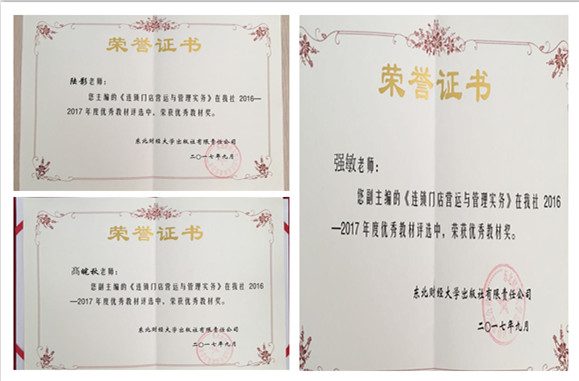 荣誉证书
陆影老师：
您主编的《连锁门店营运与管理实务》在我社 2016—
2017 年度优秀教材评选中，荣获优秀教材奖。
东北财经大学出版社有限责任公司
二〇一七年九月
荣誉证书
高晓秋老师：
您副主编的《连锁门店营运与管理实务》在我社 2016
—2017 年度优秀教材评选中，荣获优秀教材奖。
东北财经大学出版社有限责任公司
二〇一七年九月
荣誉证书
强敏老师：
您副主编的《连锁门店营运与管理实务》在我社 2016
—2017 年度优秀教材评选中，荣获优秀教材奖。
东北财经大学出版社有限责任公司
二〇一七年九月